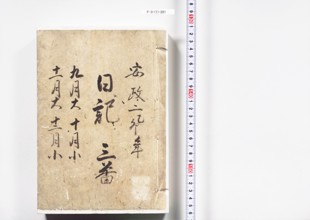 安政二乙卯年
日記 三番
九月大 十月小
十一月大 十二月小